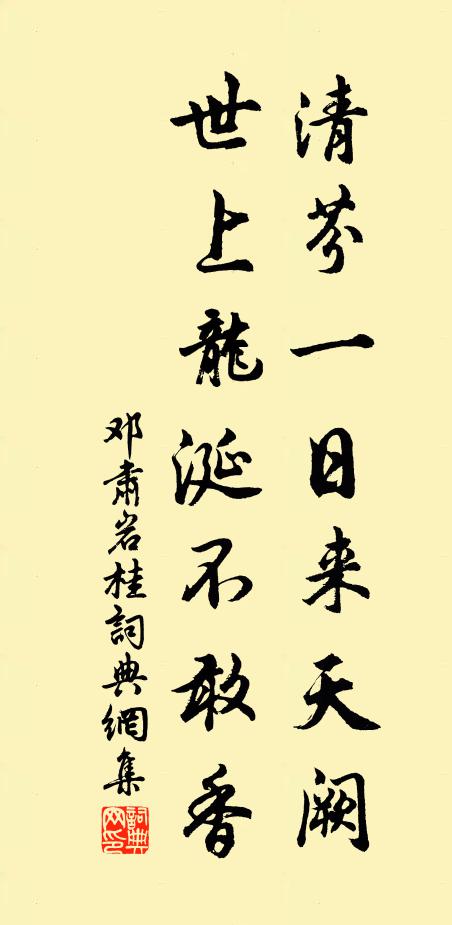 清芬一日来天阙
世上龍涎不敢香
邓肅岩桂詞典網集
詞典网印